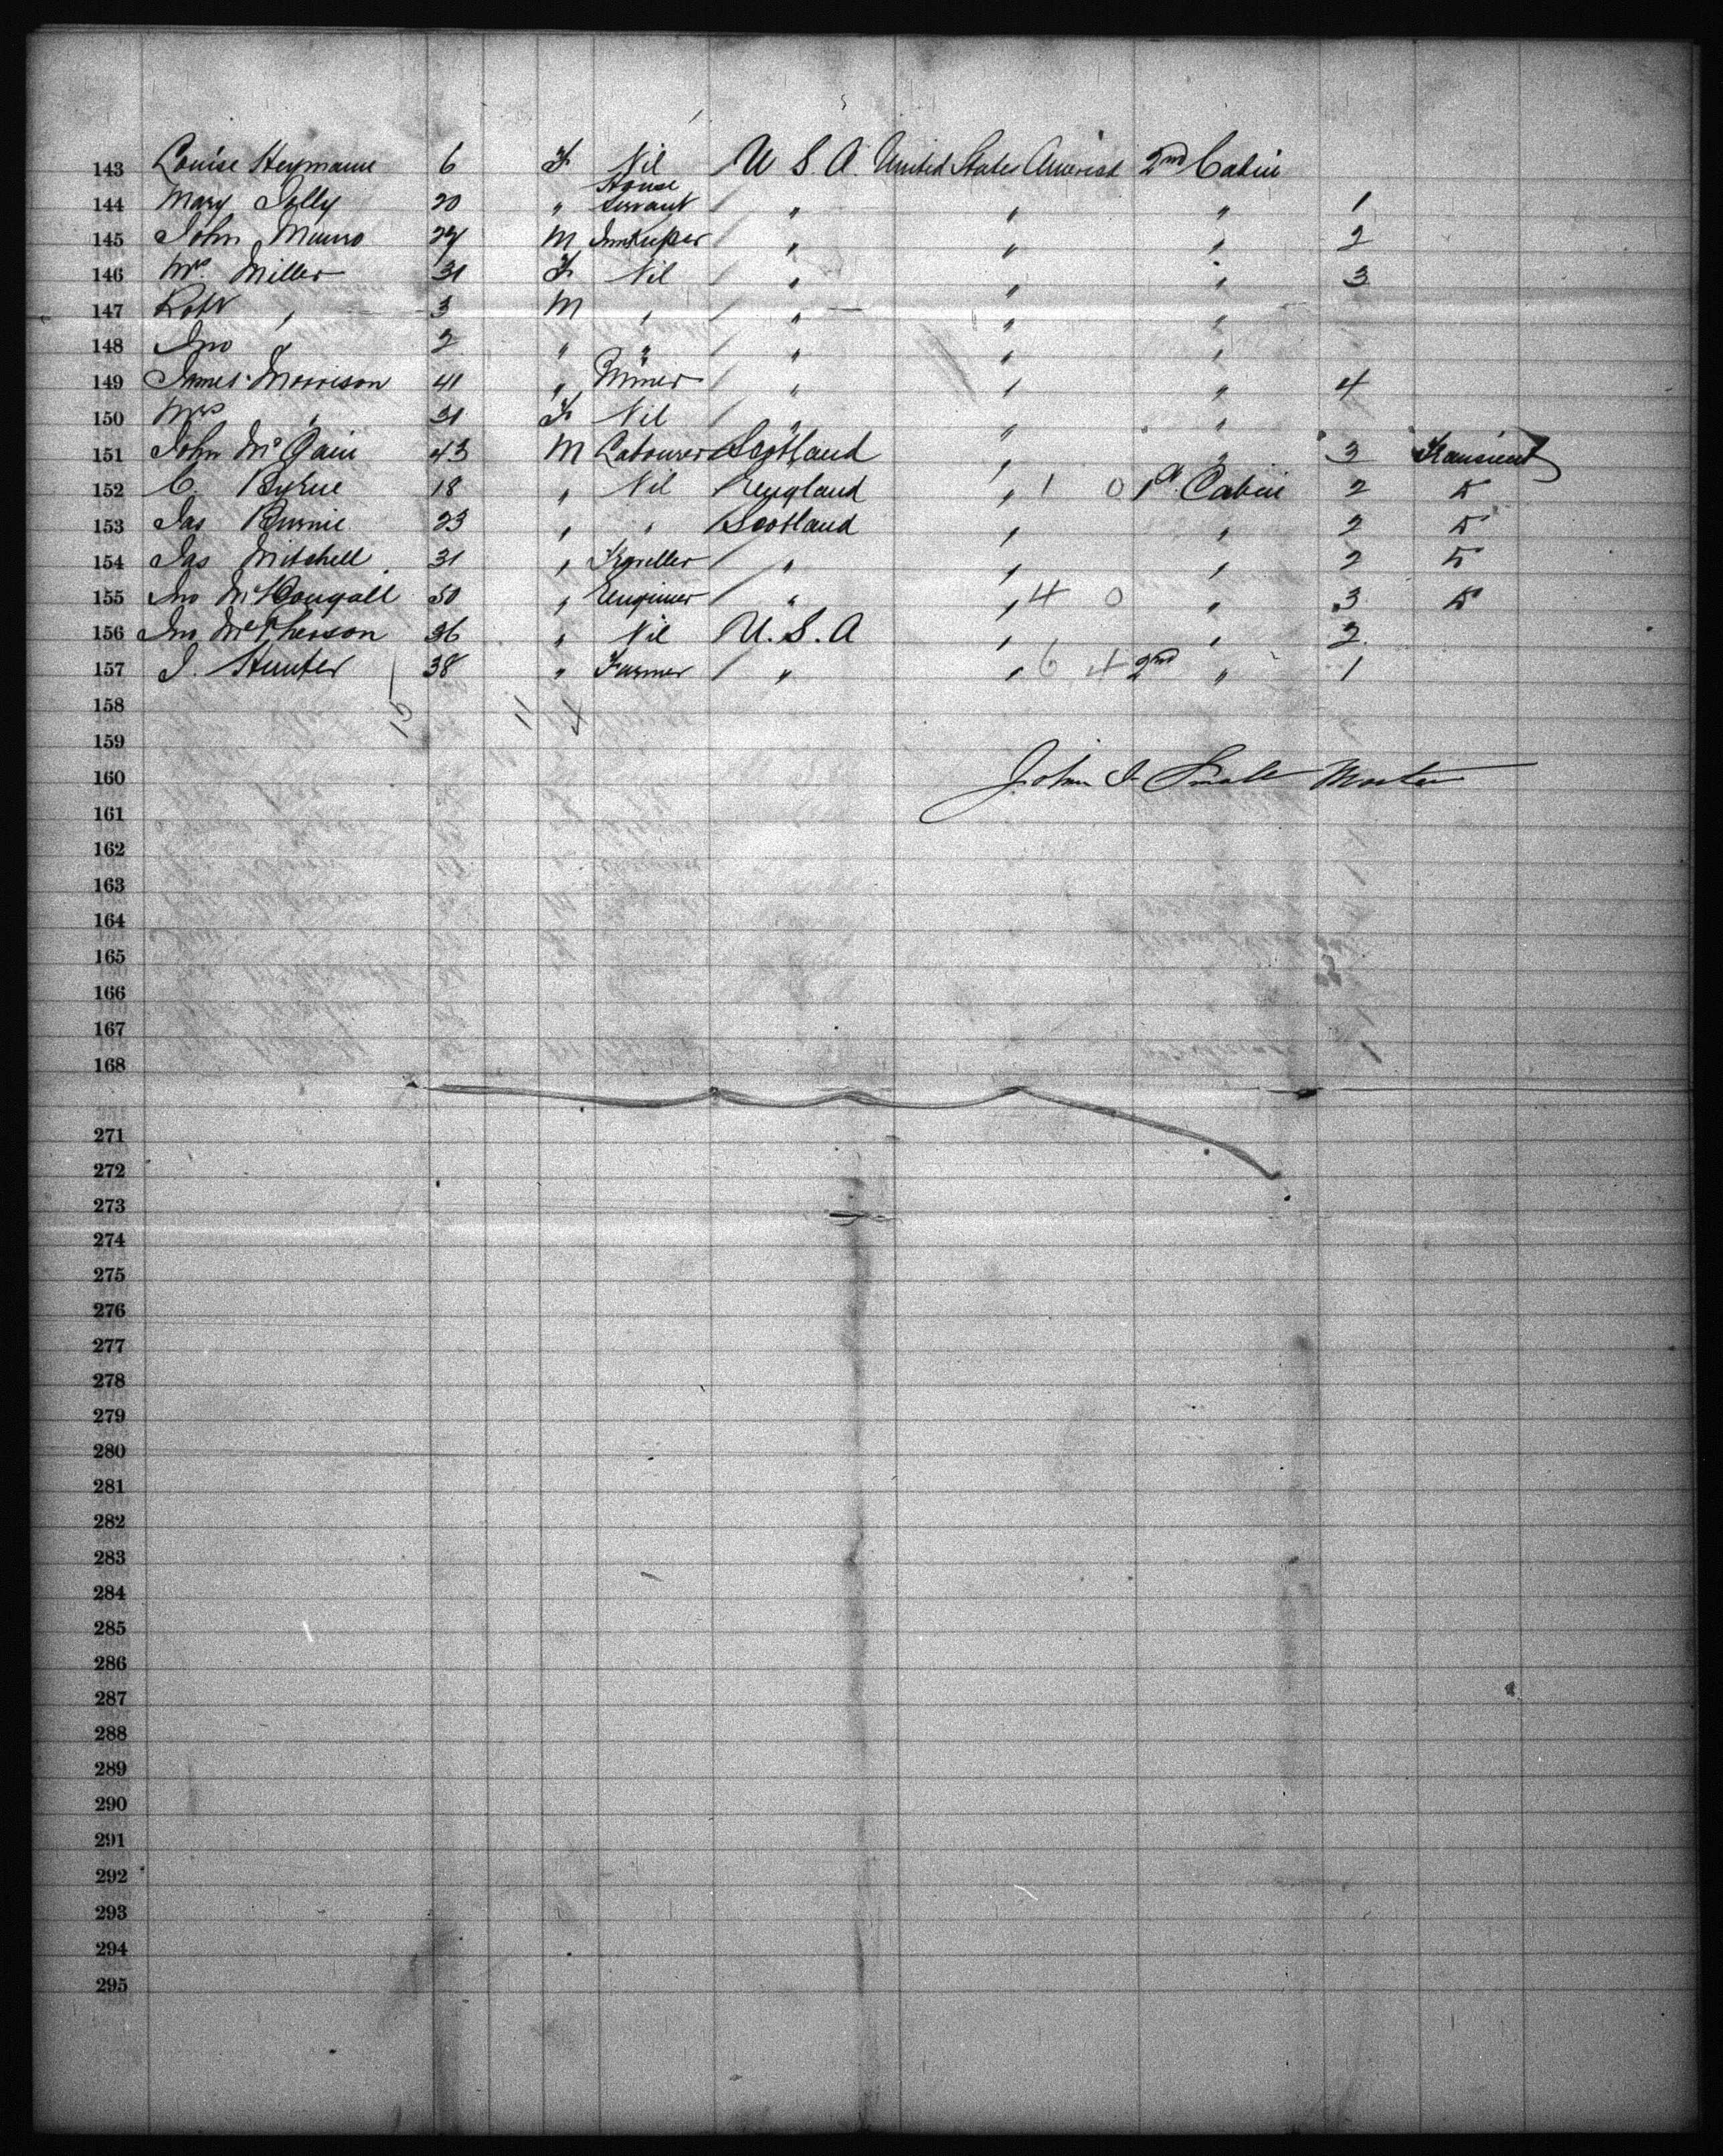 143 Louise Heymann 6 F Nil U S A. United States America 2nd Cabin
144 Mary Jolly 20 " House Servant / " " " 1
145 John Munro 27 M Innkeeper / " " " 2
146 Mrs. Miller 31 F Nil / " " " 3
147 Robt " 3 M " / " " "
148 Jno " 2 " " / " " "
149 James Morrison 41 " Miner / " " " 4
150 Mrs " 31 F Nil / " " "
151 John Mc 43 M Labourer Scotland " " 3 Transient
152 C. Byrne 18 " Nil / England " 1 0 1st Cabin 2 Do
153 Jas Burnie 23 " " / Scotland " " 2 Do
154 Jas Mitchell 31 " / " " " 2 Do
155 Jno McDougall 50 " Engineer / " " 4 0 " 3 Do
156 Jno McPherson 36 " Nil U. S. A " " 2
157 J. Hunter 38 " Farmer / " " 6 4 2nd " 1
158 15 11 4
159
160 John I Small Master
161
162
163
164
165
166
167
168
271
272
273
274
275
276
277
278
279
280
281
282
283
284
285
286
287
288
289
290
291
292
293
294
295